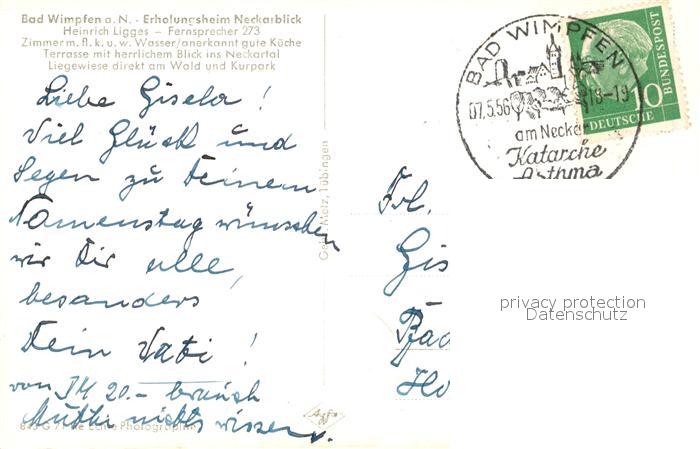 Bad Wimpfen a. N. - Erholungsheim Neckarblick
Heinrich Ligges – Fernsprecher 273
Zimmer m. fl. k. u. w. Wasser/anerkannt gute Küche
Terrasse mit herrlichem Blick ins Neckartal
Liegewiese direkt am Wald und Kurpark
Liebe Gisela !
Viel Glück und
Segen zu Deinem
Namenstag wünschen
wir Dir alle,
besonders
Dein Vati !
von DM 20.- brauch
Mutti nichts wissen.
Gebr. Metz, Tübingen
BAD WIMPFEN
07.5.56 18-19
am Neckar
Katarrhe
Asthma
DEUTSCHE BUNDESPOST
10
Frl.
Gis
Bad
Ho
privacy protection
Datenschutz
Agfa
Echte Photographie